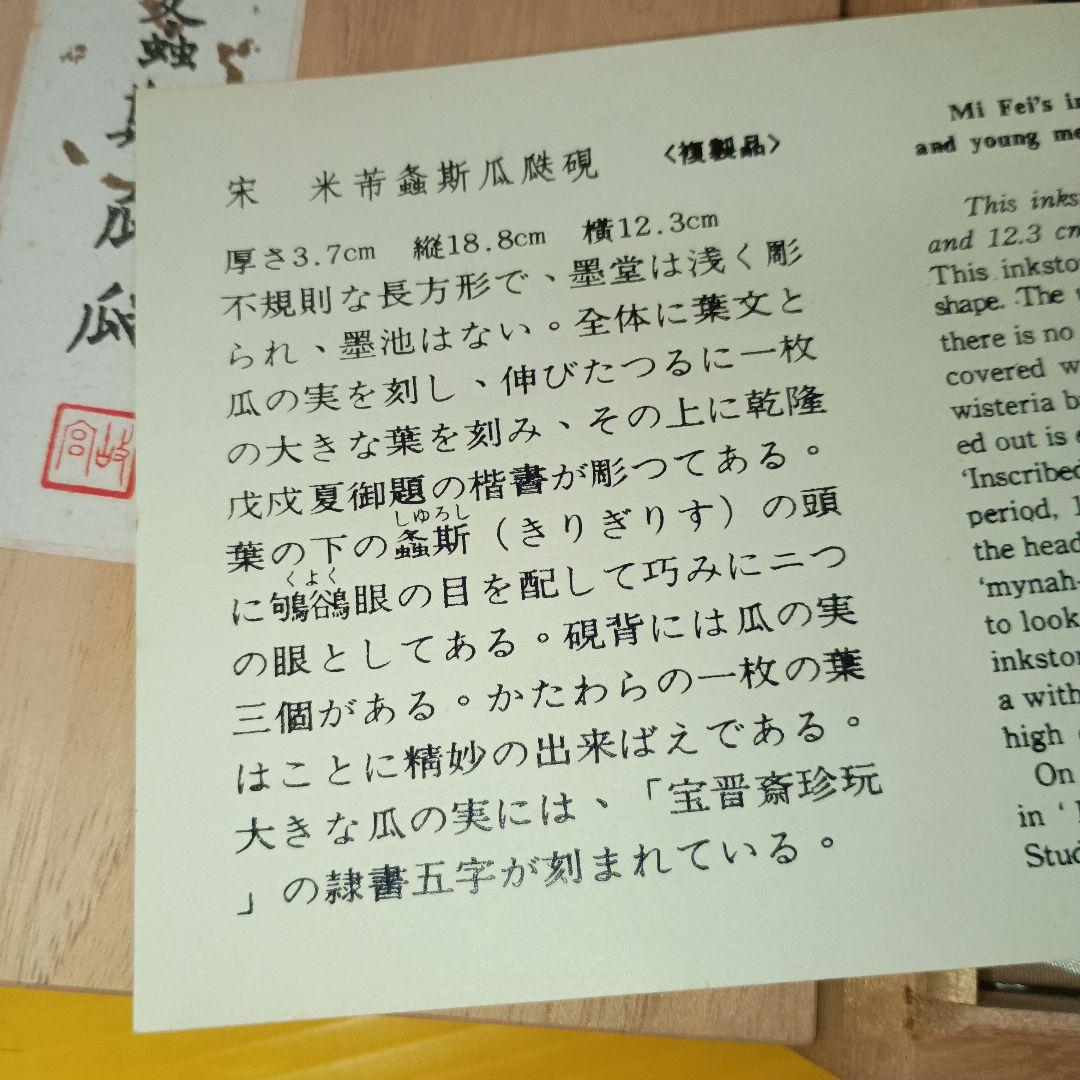 蠡斯
瓜
瓞
故宮
宋 米芾螽斯瓜瓞硯 〈複製品〉
厚さ3.7cm 縦18.8cm 横12.3cm
不規則な長方形で、墨堂は浅く彫
られ、墨池はない。全体に葉文と
瓜の実を刻し、伸びたつるに一枚
の大きな葉を刻み、その上に乾隆
戊戍夏御題の楷書が彫つてある。
しゆろし
葉の下の螽斯（きりぎりす）の頭
くよく
に鴝鵒眼の目を配して巧みに二つ
の眼としてある。硯背には瓜の実
三個がある。かたわらの一枚の葉
はことに精妙の出来ばえである。
大きな瓜の実には、「宝晋斎珍玩
」の隷書五字が刻まれている。
Mi Fei's
and young
This
and 12.3
This
shape. The
there is no
covered
wisteria
ed out is
'Inscribed
period,
the head
'mynah-
to look
a with
high
On
in '